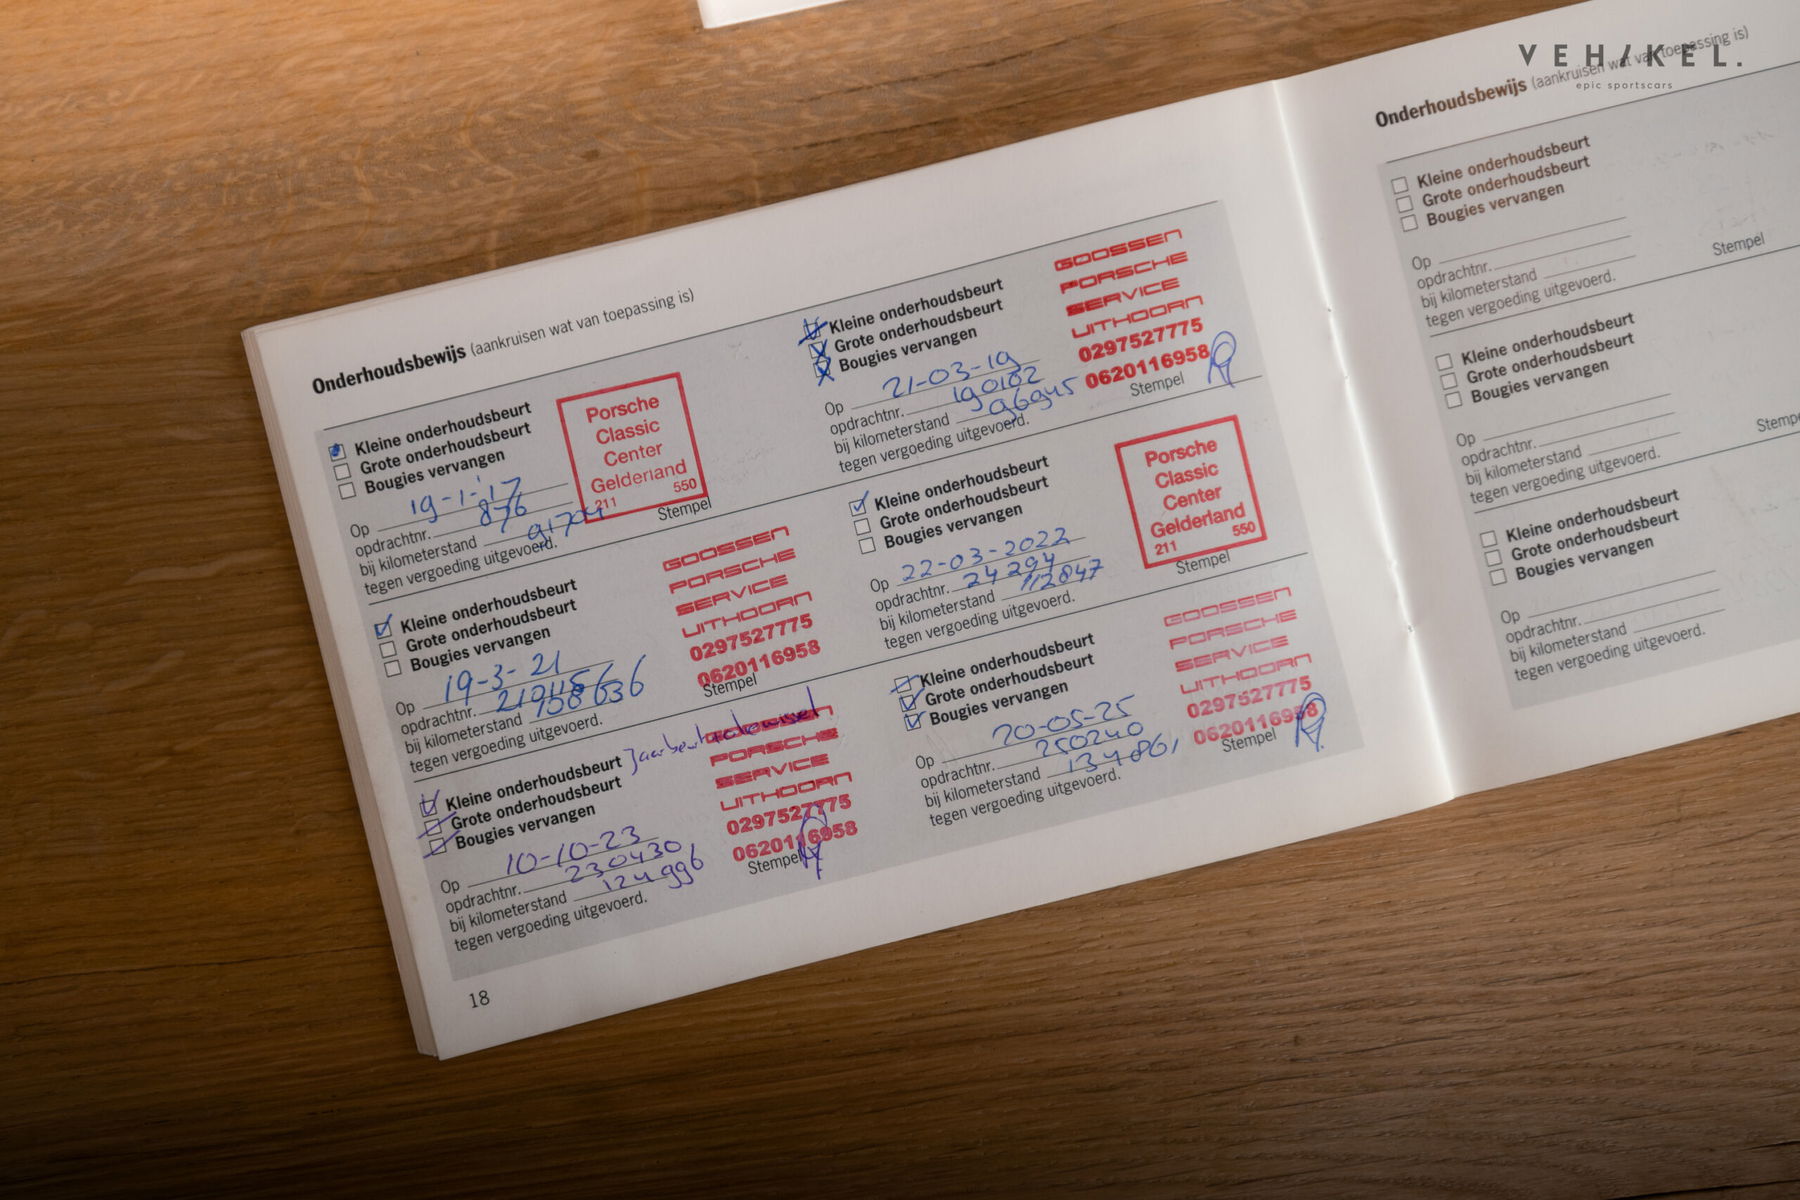 VEH/KEL.
epic sportscars
Onderhoudsbewijs (aankruisen wat van toepassing is)
Kleine onderhoudsbeurt
Grote onderhoudsbeurt
Bougies vervangen
Op 19-1-'17
opdrachtnr. 876
bij kilometerstand 91704
tegen vergoeding uitgevoerd.
Porsche
Classic
Center
Gelderland
211 550
Stempel
Kleine onderhoudsbeurt
Grote onderhoudsbeurt
Bougies vervangen
Op 19-3-21
opdrachtnr.
bij kilometerstand
tegen vergoeding uitgevoerd.
GOOSSEN
PORSCHE
SERVICE
UITHOORN
0297527775
0620116958
Stempel
Kleine onderhoudsbeurt Jaarbeurt
Grote onderhoudsbeurt
Bougies vervangen
Op 10-10-23
opdrachtnr. 230430
bij kilometerstand 124996
tegen vergoeding uitgevoerd.
GOOSSEN
PORSCHE
SERVICE
UITHOORN
0297527775
0620116958
Stempel
18
Kleine onderhoudsbeurt
Grote onderhoudsbeurt
Bougies vervangen
Op 21-03-19
opdrachtnr. 190102
bij kilometerstand 96945
tegen vergoeding uitgevoerd.
GOOSSEN
PORSCHE
SERVICE
UITHOORN
0297527775
0620116958
Stempel
Kleine onderhoudsbeurt
Grote onderhoudsbeurt
Bougies vervangen
Op 22-03-2022
opdrachtnr. 24294
bij kilometerstand 112847
tegen vergoeding uitgevoerd.
Porsche
Classic
Center
Gelderland
211 550
Stempel
Kleine onderhoudsbeurt
Grote onderhoudsbeurt
Bougies vervangen
Op 20-05-25
opdrachtnr. 250240
bij kilometerstand 134861
tegen vergoeding uitgevoerd.
GOOSSEN
PORSCHE
SERVICE
UITHOORN
0297527775
0620116958
Stempel
Onderhoudsbewijs (aankruisen wat van toepassing is)
Kleine onderhoudsbeurt
Grote onderhoudsbeurt
Bougies vervangen
Op
opdrachtnr.
bij kilometerstand
tegen vergoeding uitgevoerd.
Stempel
Kleine onderhoudsbeurt
Grote onderhoudsbeurt
Bougies vervangen
Op
opdrachtnr.
bij kilometerstand
tegen vergoeding uitgevoerd.
Stempe
Kleine onderhoudsbeurt
Grote onderhoudsbeurt
Bougies vervangen
Op
opdrachtnr.
bij kilometerstand
tegen vergoeding uitgevoerd.